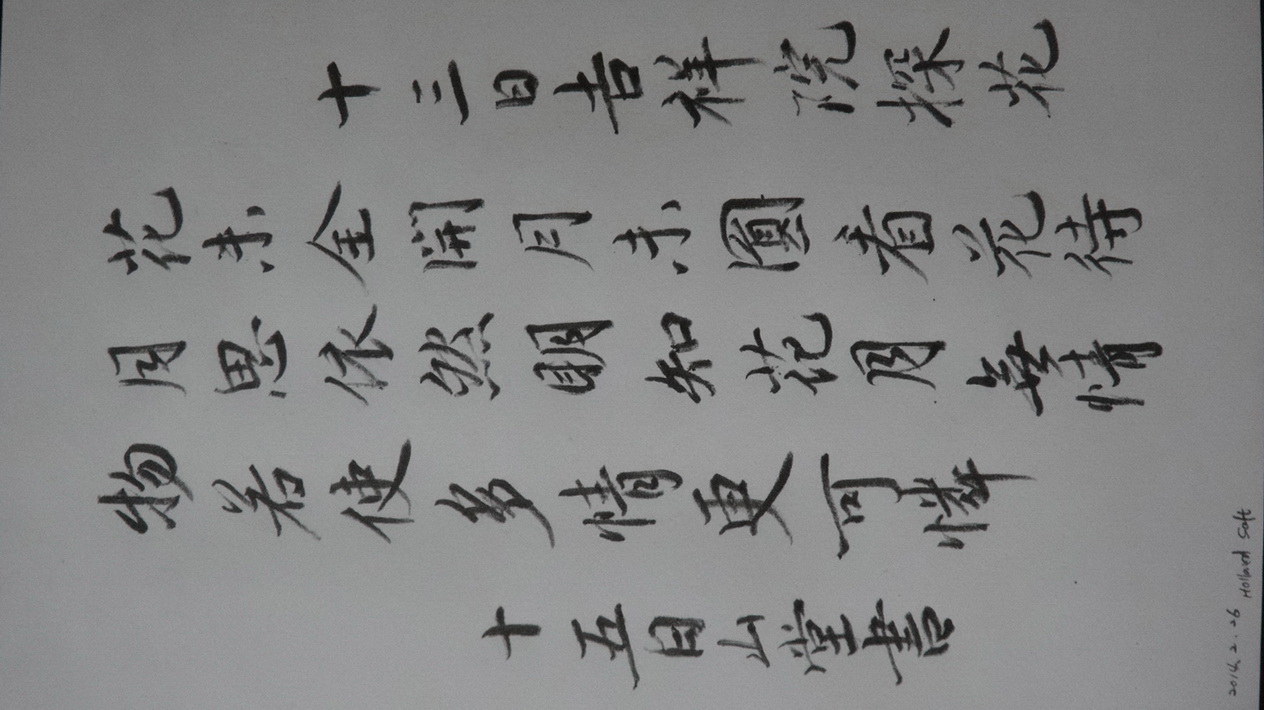 十三日吉祥院探花
花未全開月未圓看花待
月思依然明知花月無情
物若使多情更可憐
十五日山堂書
2014.2.26 Holland Soft